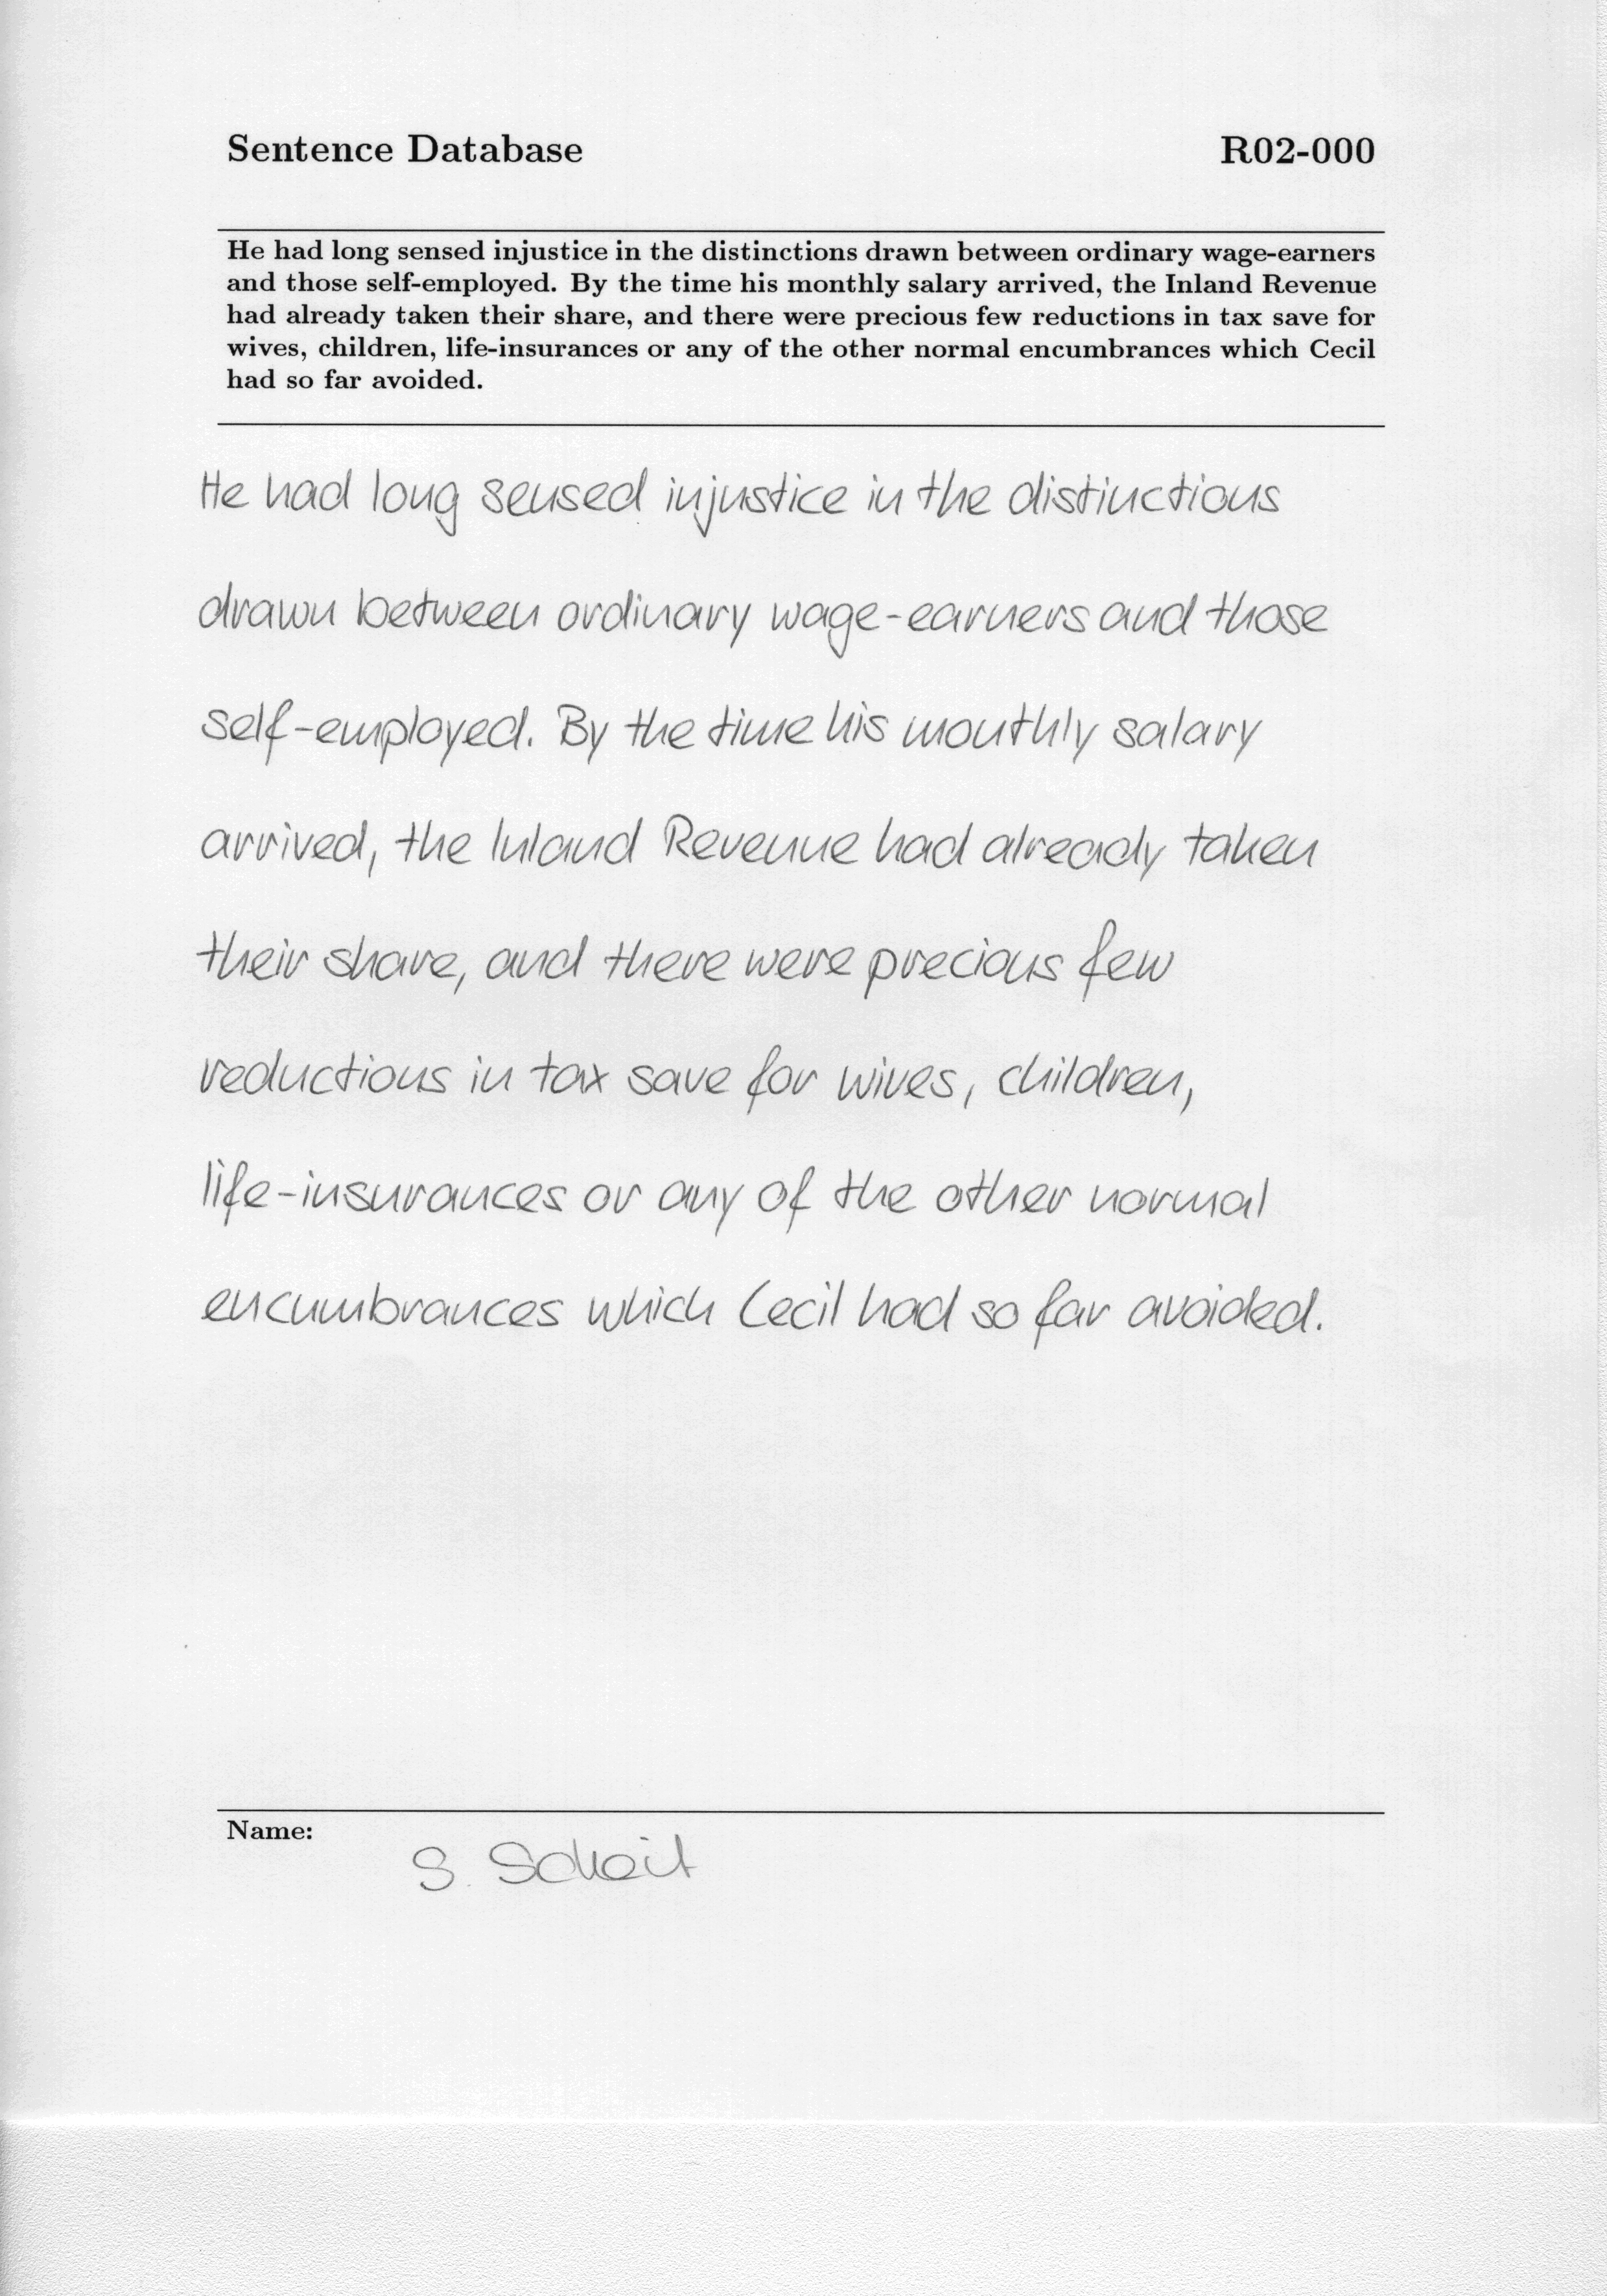 Sentence Database R02-000
He had long sensed injustice in the distinctions drawn between ordinary wage-earners
and those self-employed. By the time his monthly salary arrived, the Inland Revenue
had already taken their share, and there were precious few reductions in tax save for
wives, children, life-insurances or any of the other normal encumbrances which Cecil
had so far avoided.
He had long sensed injustice in the distinctions
drawn between ordinary wage-earners and those
self-employed. By the time his monthly salary
arrived, the Inland Revenue had already taken
their share, and there were precious few
reductions in tax save for wives, children,
life-insurances or any of the other normal
encumbrances which Cecil had so far avoided.
Name:
S.